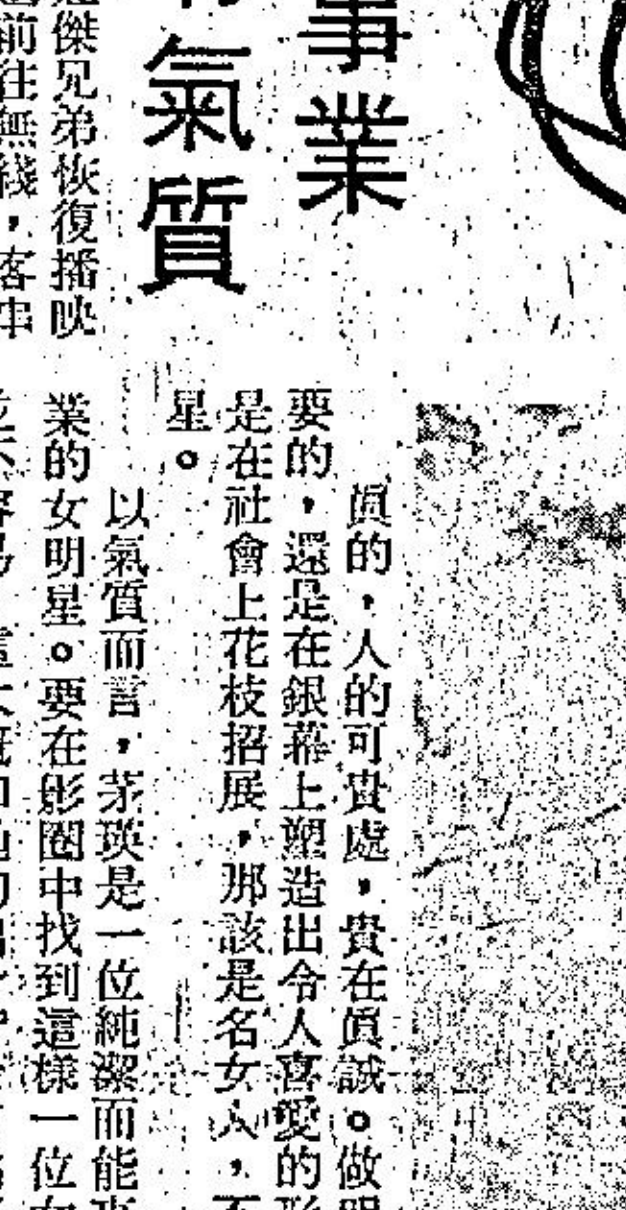 事業
氣質
傑兄弟恢復播映
前往無綫，客串
眞的，人的可貴處，貴在眞誠。做
要的，還是在銀幕上塑造出令人喜愛的形
是在社會上花枝招展，那該是名女人，不
星。
以氣質而言，茅瑛是一位純潔而能
業的女明星。要在影圈中找到這樣一位
容易